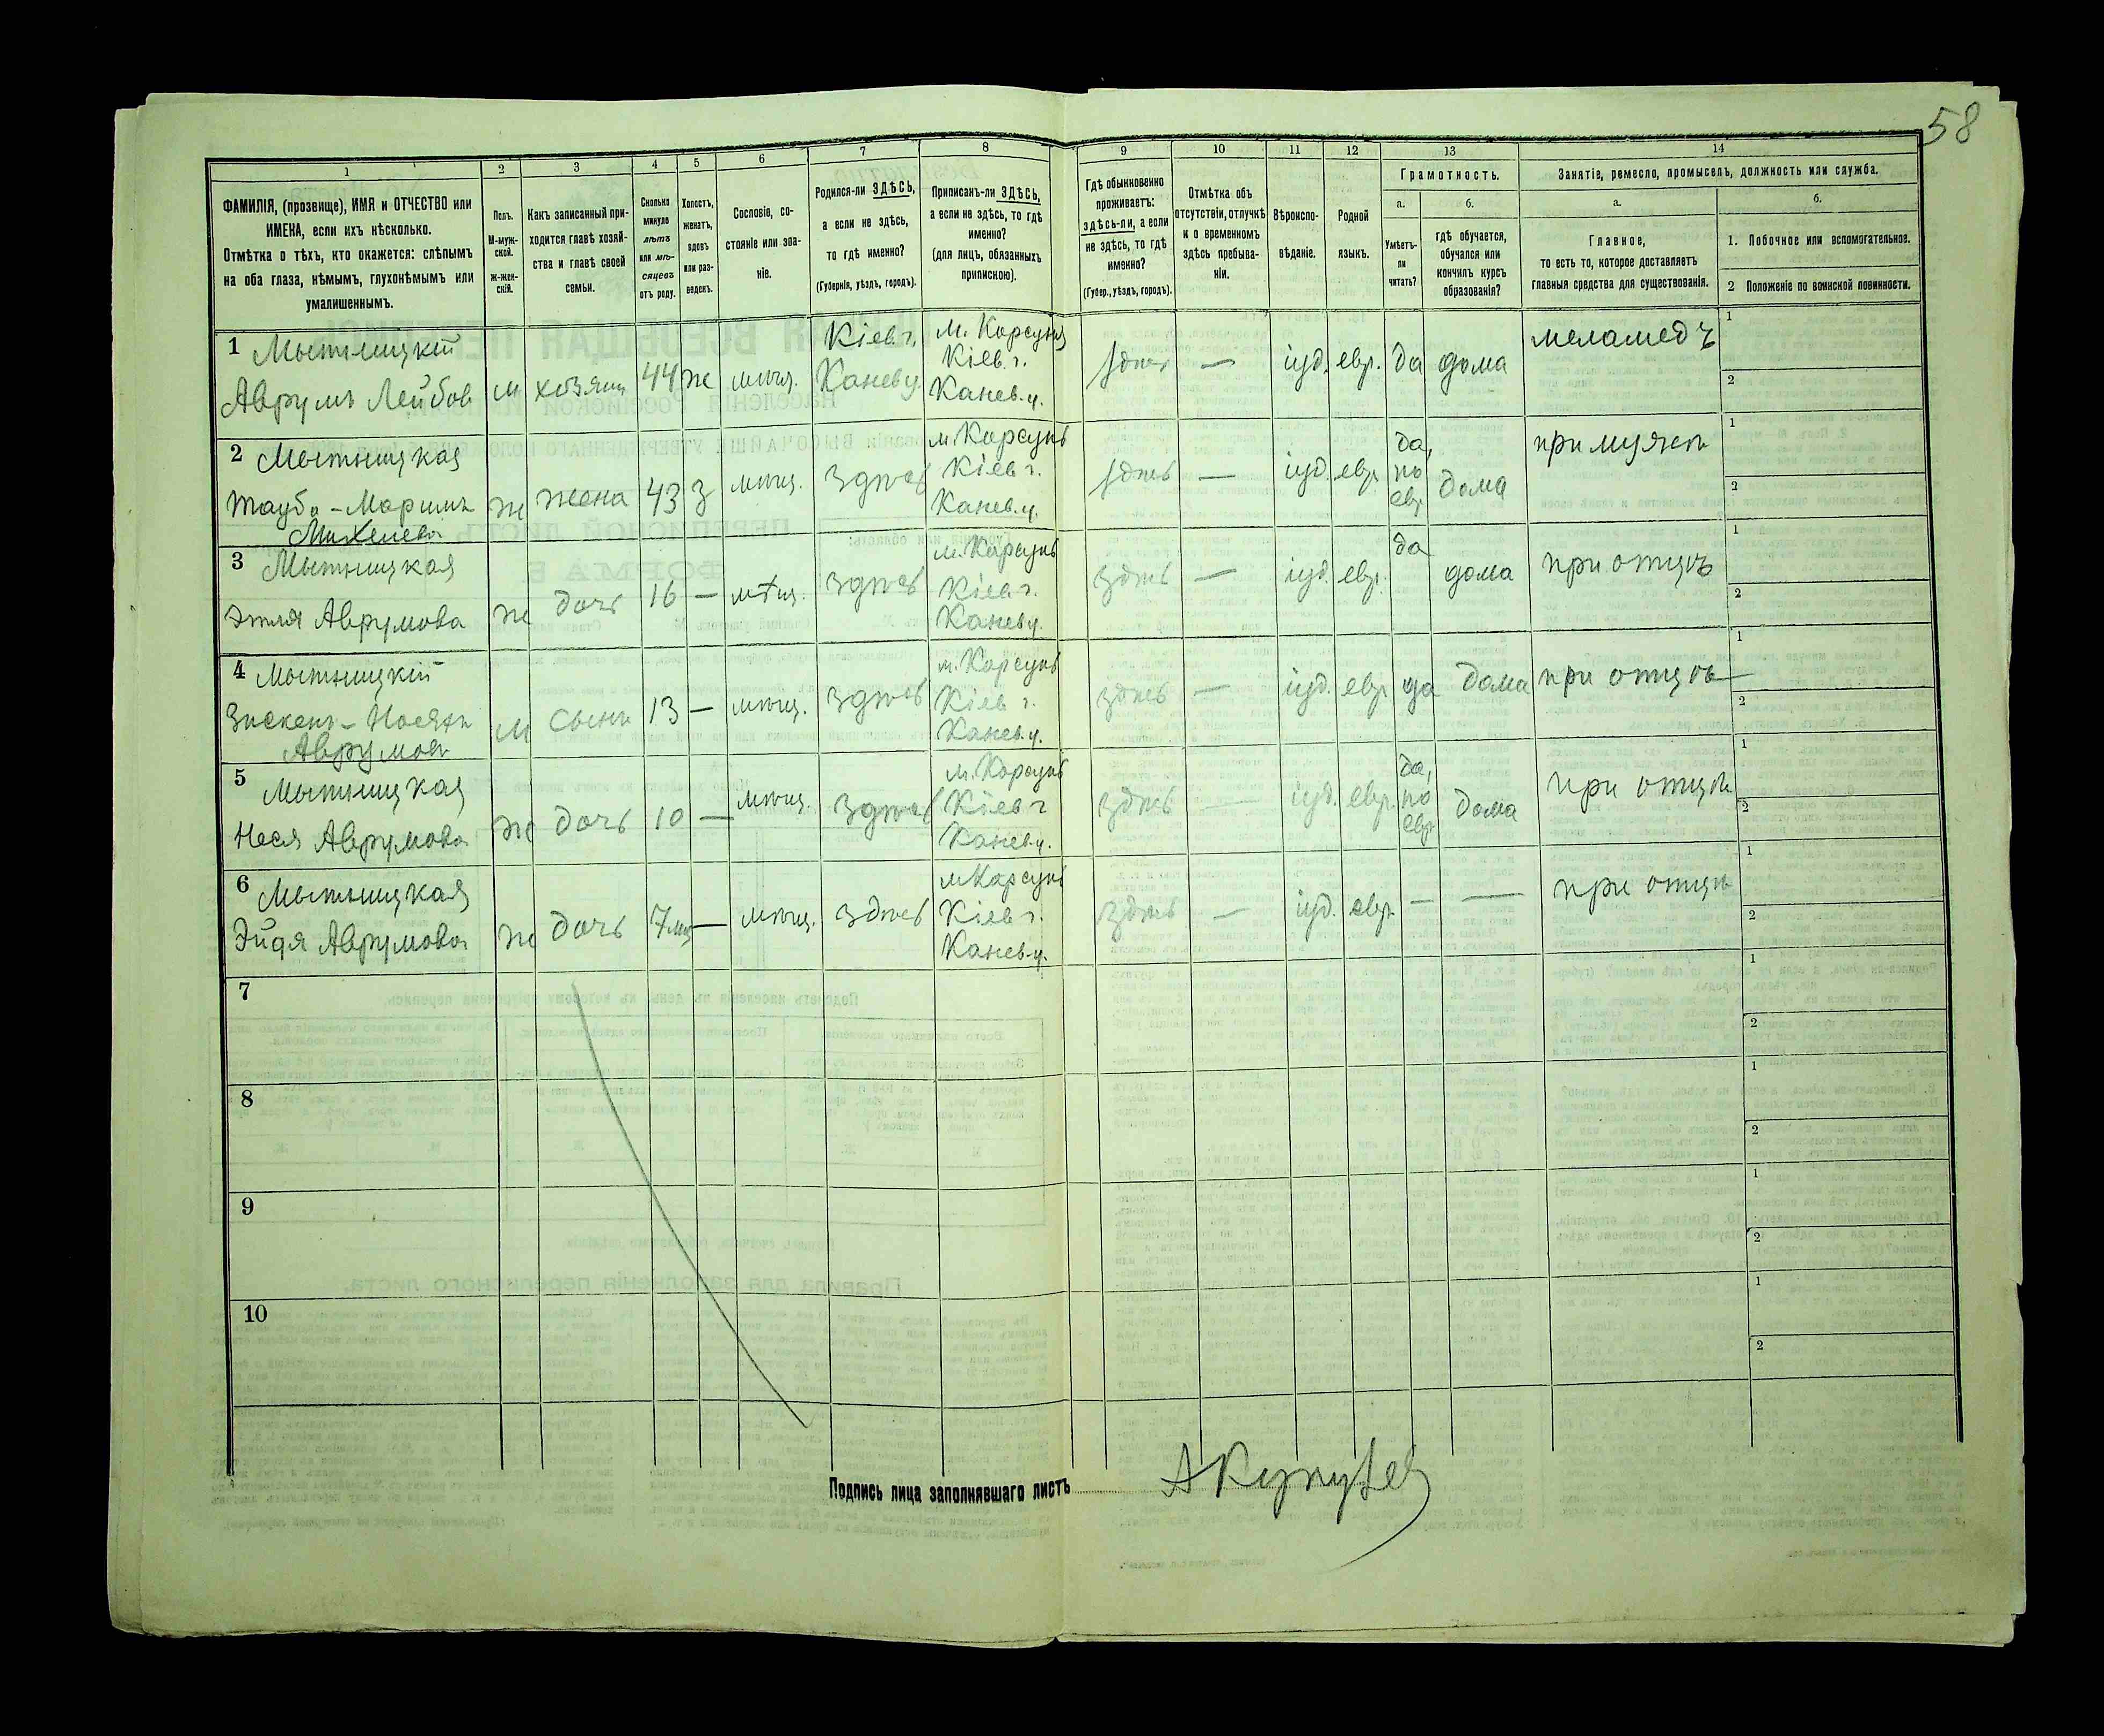 58
1 2 3 4 5 6 7 8 9 10 11 12 13 14
ФАМИЛІЯ, (прозвище), ИМЯ и ОТЧЕСТВО или
ИМЕНА, если ихъ нѣсколько.
Отмѣтка о тѣхъ, кто окажется: слѣпымъ
на оба глаза, нѣмымъ, глухонѣмымъ или
умалишеннымъ.
Полъ.
М-муж-
ской.
Ж-жен-
скій.
Какъ записанный при-
ходится главѣ хозяй-
ства и главѣ своей
семьи.
Сколько
минуло
лѣтъ
или мѣ-
сяцевъ
отъ роду.
Холостъ,
женатъ,
вдовъ
или раз-
веденъ.
Сословіе, со-
стояніе или зва-
ніе.
Родился-ли ЗДѢСЬ,
а если не здѣсь,
то гдѣ именно?
(Губернія, уѣздъ, городъ).
Приписанъ-ли ЗДѢСЬ,
а если не здѣсь, то гдѣ
именно?
(для лицъ, обязанныхъ
припискою).
Гдѣ обыкновенно
проживаетъ:
здѣсь-ли, а если
не здѣсь, то гдѣ
именно?
(Губер., уѣздъ, городъ).
Отмѣтка объ
отсутствіи, отлучкѣ
и о временномъ
здѣсь пребыва-
ніи.
Вѣроиспо-
вѣданіе.
Родной
языкъ.
Грамотность.
а.
Умѣетъ-
ли
читать?
б.
гдѣ обучается,
обучался или
кончилъ курсъ
образованія?
Занятіе, ремесло, промыселъ, должность или служба.
а.
Главное,
то есть то, которое доставляетъ
главныя средства для существованія.
б.
1. Побочное или вспомогательное.
2 Положеніе по воинской повинности.
1 Мытницкій
Аврумъ Лейбов
м хозяин 44 ж мѣщ.
Кіев г.
Канев у.
м. Корсунь
Кіев. г.
Канев. у.
здѣсь — іуд. евр. да дома
меламедъ
1
2
2 Мытницкая
Тауба-Маримъ
Михелева
ж жена 43 з мѣщ. здѣсь
м Корсунь
Кіев г.
Канев. у.
здѣсь — іуд. евр.
да,
по
евр
дома
при мужѣ
1
2
3 Мытницкая
Этля Аврумова
ж дочь 16 — мѣщ. здѣсь
м. Корсунь
Кіев г.
Канев у.
здѣсь — іуд. евр. да дома
при отцѣ
1
2
4 Мытницкій
Аврумов
м сынъ 13 — мѣщ. здѣсь
м. Корсунь
Кіев г.
Канев. у.
здѣсь — іуд. евр да дома
при отцѣ
1
2
5 Мытницкая
Неся Аврумова
ж дочь 10 — мѣщ. здѣсь
м. Корсунь
Кіев г
Канев. у.
здѣсь — іуд. евр.
да,
по
евр
дома
при отцѣ
1
2
6 Мытницкая
Эйдя Аврумова
ж дочь 7 мц — мѣщ. здѣсь
м Корсунь
Кіев г.
Канев. у.
здѣсь — іуд. евр. — —
при отцѣ
1
2
7
1
2
8
1
2
9
1
2
10
1
2
Подпись лица заполнявшаго листъ